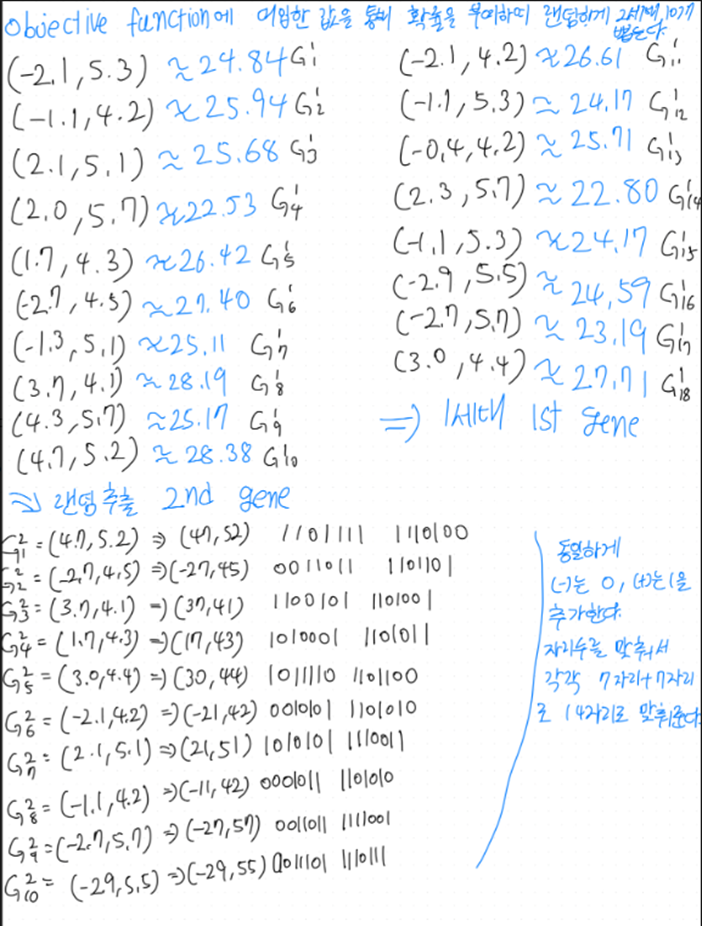 Objective function에 대입한 값을 통해 확률을 부여하며 랜덤하게 2세대 10개
뽑는다.
(-2.1, 5.3) ≈ 24.84 G₁¹
(-1.1, 4.2) ≈ 25.94 G₂¹
(2.1, 5.1) ≈ 25.68 G₃¹
(2.0, 5.7) ≈ 22.53 G₄¹
(1.7, 4.3) ≈ 26.42 G₅¹
(-2.7, 4.5) ≈ 27.40 G₆¹
(-1.3, 5.1) ≈ 25.11 G₇¹
(3.7, 4.1) ≈ 28.19 G₈¹
(4.3, 5.7) ≈ 25.17 G₉¹
(4.7, 5.2) ≈ 28.38 G₁₀¹
(-2.1, 4.2) ≈ 26.61 G₁₁¹
(-1.1, 5.3) ≈ 24.17 G₁₂¹
(-0.4, 4.2) ≈ 25.71 G₁₃¹
(2.3, 5.7) ≈ 22.80 G₁₄¹
(-1.1, 5.3) ≈ 24.17 G₁₅¹
(-2.9, 5.5) ≈ 24.59 G₁₆¹
(-2.7, 5.7) ≈ 23.19 G₁₇¹
(3.0, 4.4) ≈ 27.71 G₁₈¹
⇒ 1세대 1st gene
⇒ 랜덤추출 2nd gene
G₁² = (4.7, 5.2) ⇒ (47, 52) 1101111 1110100
G₂² = (-2.7, 4.5) ⇒ (-27, 45) 0011011 1101101
G₃² = (3.7, 4.1) ⇒ (37, 41) 1100101 1101001
G₄² = (1.7, 4.3) ⇒ (17, 43) 1010001 1101011
G₅² = (3.0, 4.4) ⇒ (30, 44) 1011110 1101100
G₆² = (-2.1, 4.2) ⇒ (-21, 42) 0010101 1101010
G₇² = (2.1, 5.1) ⇒ (21, 51) 1010101 1110011
G₈² = (-1.1, 4.2) ⇒ (-11, 42) 0001011 1101010
G₉² = (-2.7, 5.7) ⇒ (-27, 57) 0011011 1111001
G₁₀² = (-29, 5.5) ⇒ (-29, 55) 0011101 1110111
동일하게
(-)는 0, (+)는 1을
추가한다.
자리수를 맞춰서
각각 7자리+7자리
로 14자리로 맞춰준다.